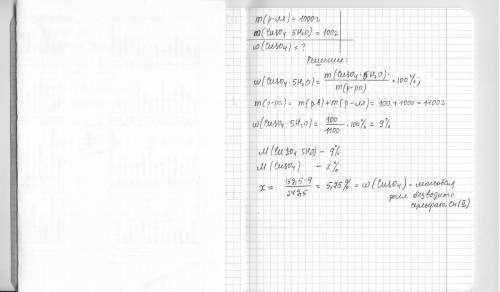 m(р-ля) = 1000г
m(CuSO₄ · 5H₂O) = 100г
ω(CuSO₄) = ?
Решение:
ω(CuSO₄ · 5H₂O) = m(CuSO₄ · 5H₂O) / m(р-ра) · 100%;
m(р-ра) = m(р.в) + m(р-ля) = 100 + 1000 = 1100г
ω(CuSO₄ · 5H₂O) = 100/1100 · 100% = 9%
M(CuSO₄ · 5H₂O) – 9%
M(CuSO₄) – x%
x = 159,5 · 9 / 249,5 = 5,75% = ω(CuSO₄) – массовая
доля безводного
сульфата Cu(II)